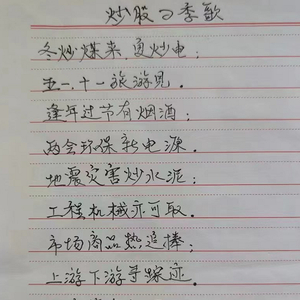 炒股四季歌
冬炒煤来夏炒电；
五一、十一旅游见。
逢年过节有烟酒；
两会环保新电源。
地震灾害炒水泥；
工程机械亦可取。
市场商品热追捧；
上游下游寻踪迹。